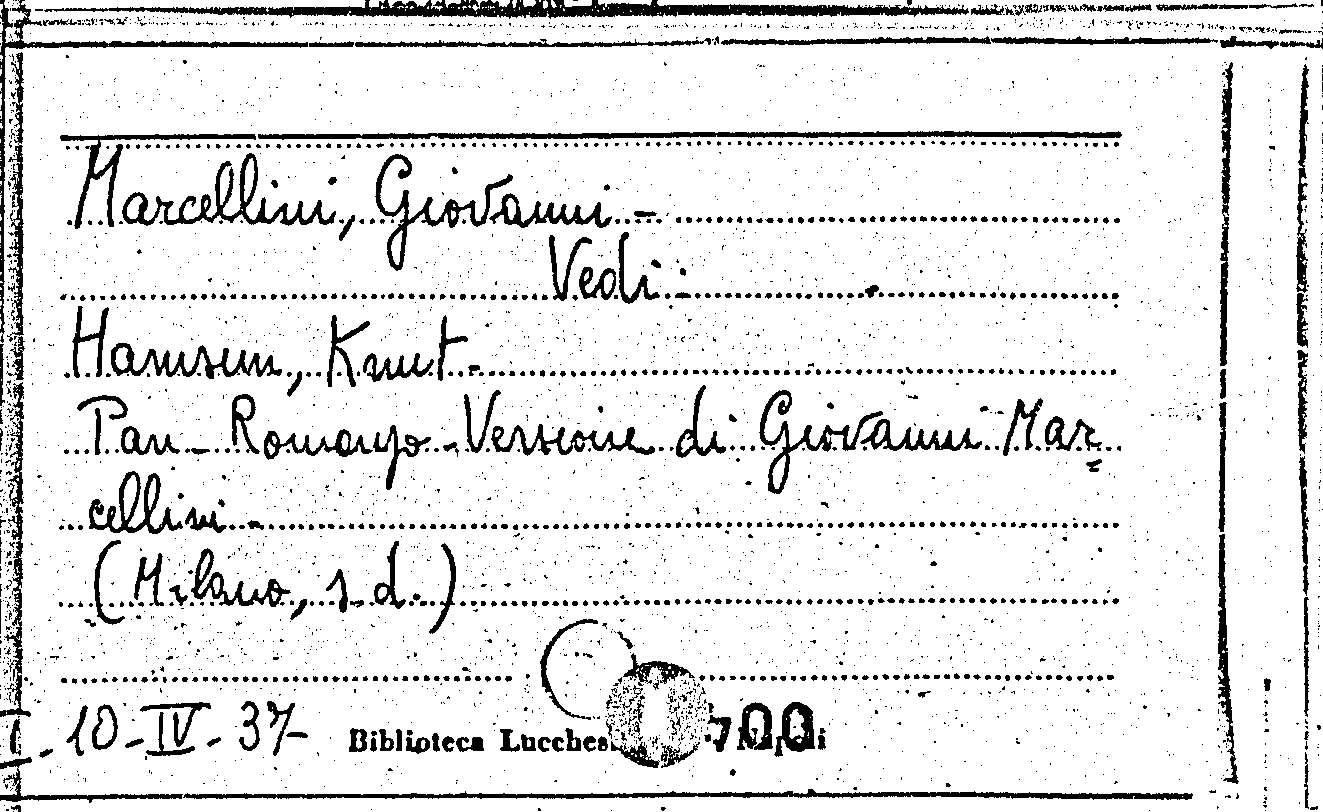 Marcellini, Giovanni -
Vedi:
Hamsun, Knut -
Pan - Romanzo - Versione di Giovanni Mar=
cellini -
(Milano, s. d.)
10 - IV - 37 - Biblioteca Lucchesi 700 Napoli